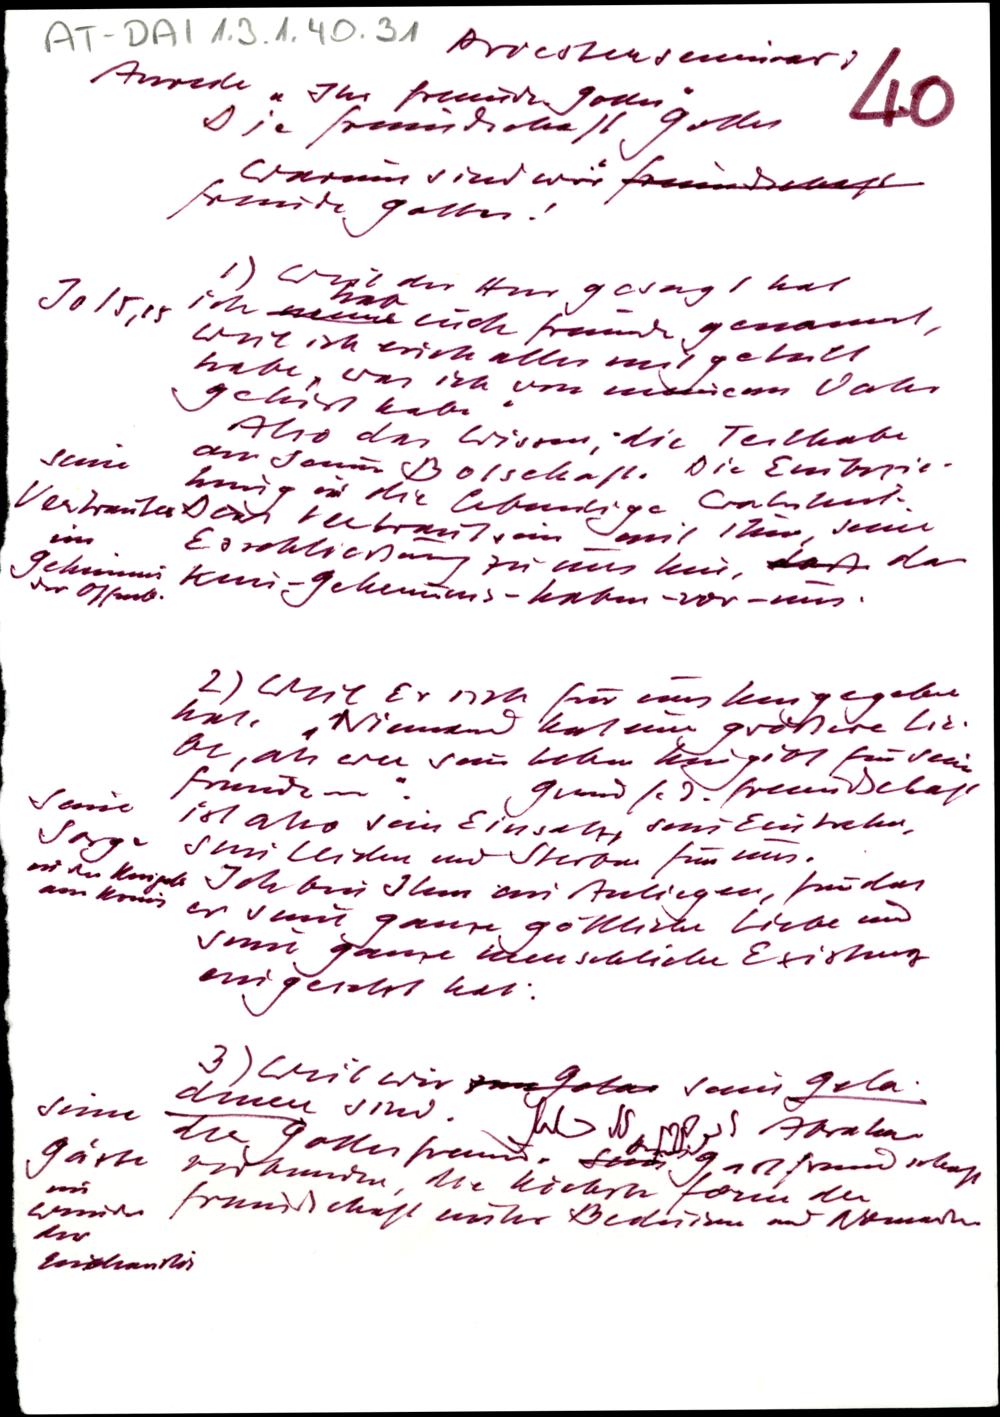 AT-DAI 1.3.1.40.31
Priesterseminar:
40
Anrede „Ihr Freunde Gottes"
Die Freundschaft Gottes
Warum sind wir Freundschaft
Freunde Gottes!
1) Weil der Herr gesagt hat
Jo 15,15
ich meine hab euch Freunde genannt,
weil ich euch alles mitgeteilt
habe, was ich von meinem Vater
gehört habe"
Also das Wissen, die Teilhabe
an seiner Botschaft. Die Einbezie-
hung in die lebendige
Das Vertrautsein mit Ihm, seine
Erschließung zu uns hin, das
Kein-Geheimnis-haben-vor-uns.
seine
Vertrauten
im
Geheimnis
der Offenb.
2) Weil Er sich für uns hingegeben
hat. „Niemand hat eine größere Lie-
be, als wer sein Leben hingibt für seine
Freunde". Grund f. d. Freundschaft
ist also sein Einsatz, sein Eintreten,
sein Leiden und Sterben für uns.
Ich bin Ihm ein Anliegen, für das
er seine ganze göttliche Liebe und
seine ganze menschliche Existenz
eingesetzt hat.
seine
Sorge
in der Hingabe
am Kreuz
3) Weil wir seine Gela-
denen sind. Abraham
der Gottesfreund. Gastfreundschaft
verbunden, die höchste Form der
Freundschaft unter Beduinen und Nomaden
seine
Gäste
im
Wunder
der
Eucharistie